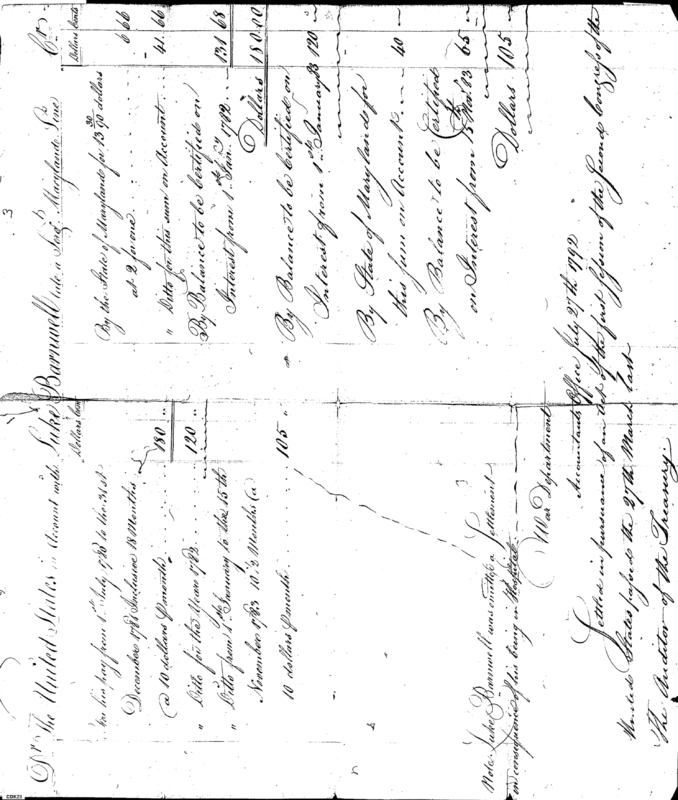 Dr The United States in Account with Luke Barnwell late a Sergt Maryland Line Cr
Dollars Cents
Dollars Cents
For his pay from 1st July 1780 to the 31st
December 1781 Inclusive 18 Months
@ 10 dollars ⅌ month . . . 180 "
" Ditto for the Year 1782 . . . . 120 "
" Ditto from 1st January to the 15th
November 1783 10 ½ Months @
10 dollars ⅌ month . . . . . . 105 "
By the State of Maryland for 13 30/90 dollars
at 2 for one . . . . 6 66
" Ditto for this sum on Account . . . 41. 66
By Balance to be Certified on
Interest from 1st Jany 1782 . . . 131 68
Dollars 180.00
By Balance to be Certified on
Interest from 1st January 83 120 "
By State of Maryland for
this sum on Account . . . 40
By Balance to be Certified
on Interest from 15 Nov. 83 65 "
Dollars 105 "
Note Luke Barnwell was entitled a Settlement
in consequence of his being in the Hospital
War Department
Accountants Office July 27th 1792
Settled in pursuance of an Act of the first Session of the second Congress of the
United States passed the 27th March last
The Auditor of the Treasury.
CDK21